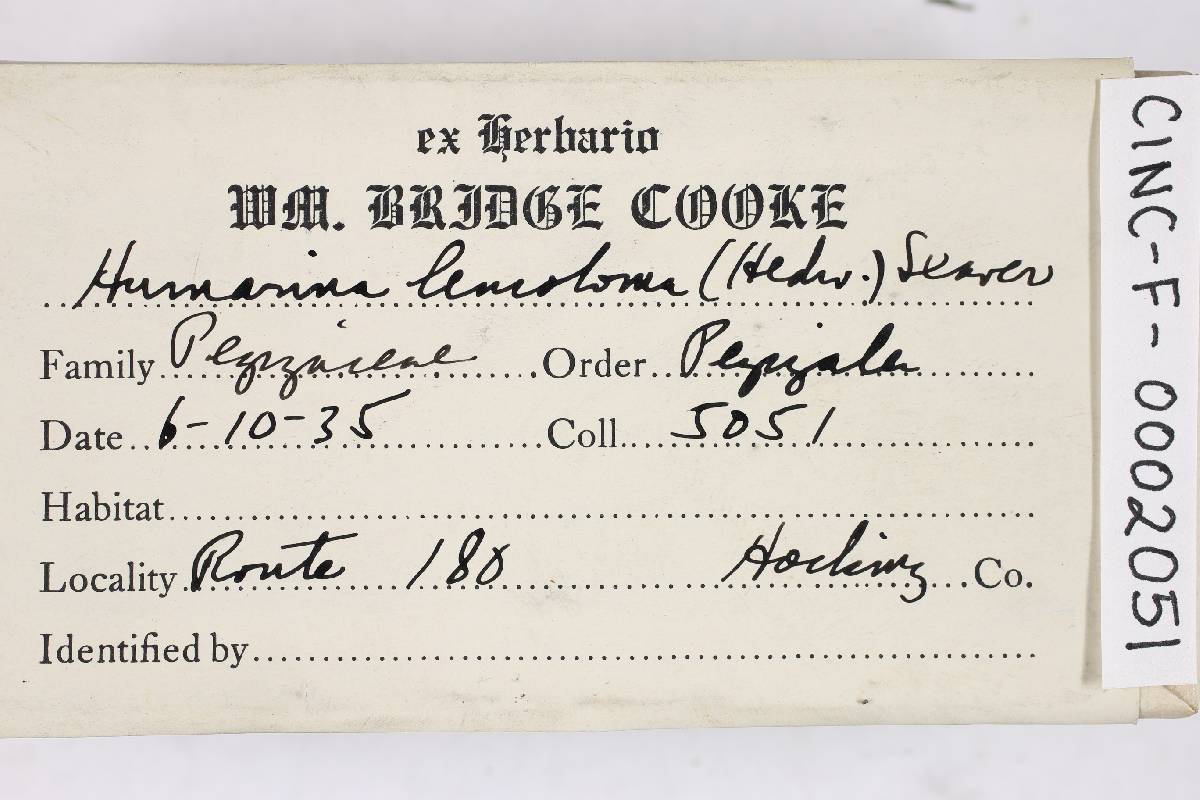 ex Herbario
WM. BRIDGE COOKE
Humarina leucoloma (Hedw.) Seaver
Family Pezizaceae Order Pezizales
Date 6-10-35 Coll. 5051
Habitat
Locality Route 180 Hocking Co.
Identified by
CINC-F-0002051